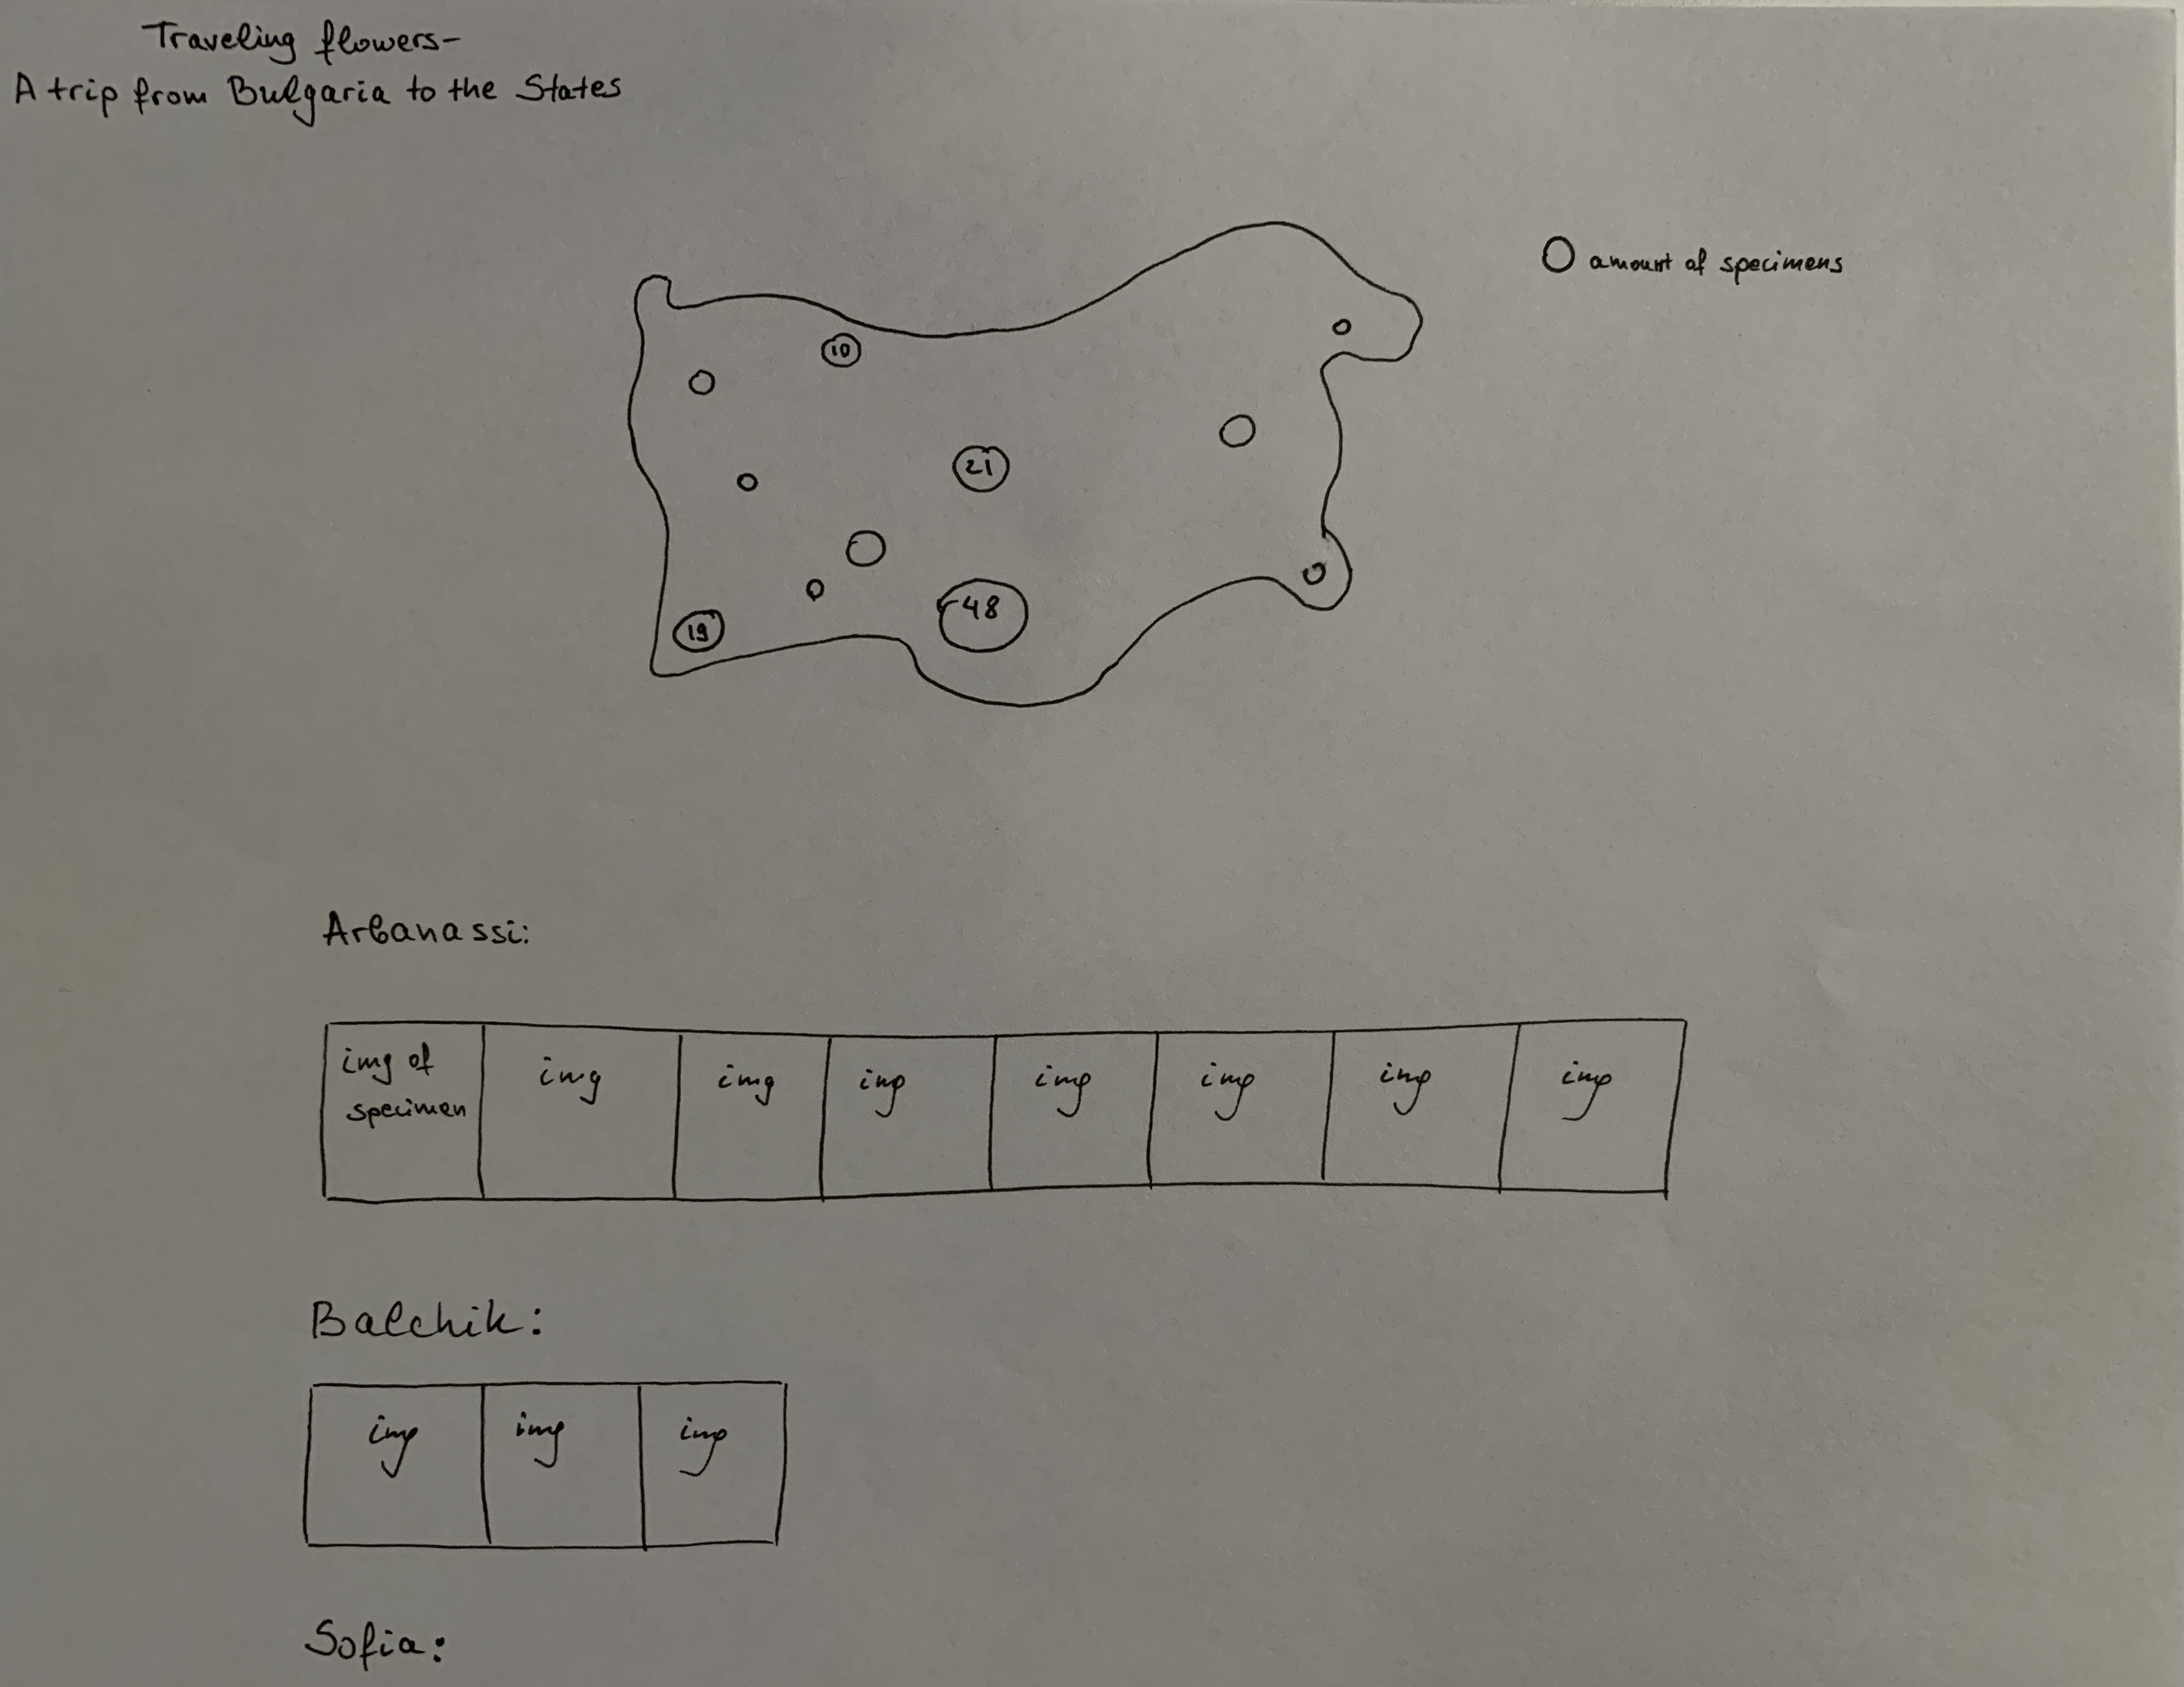 Traveling flowers-
A trip from Bulgaria to the States
amount of specimens
10
21
48
19
Arbanassi:
img of
specimen
img
img
img
img
img
img
img
Balchik:
img
img
img
Sofia: